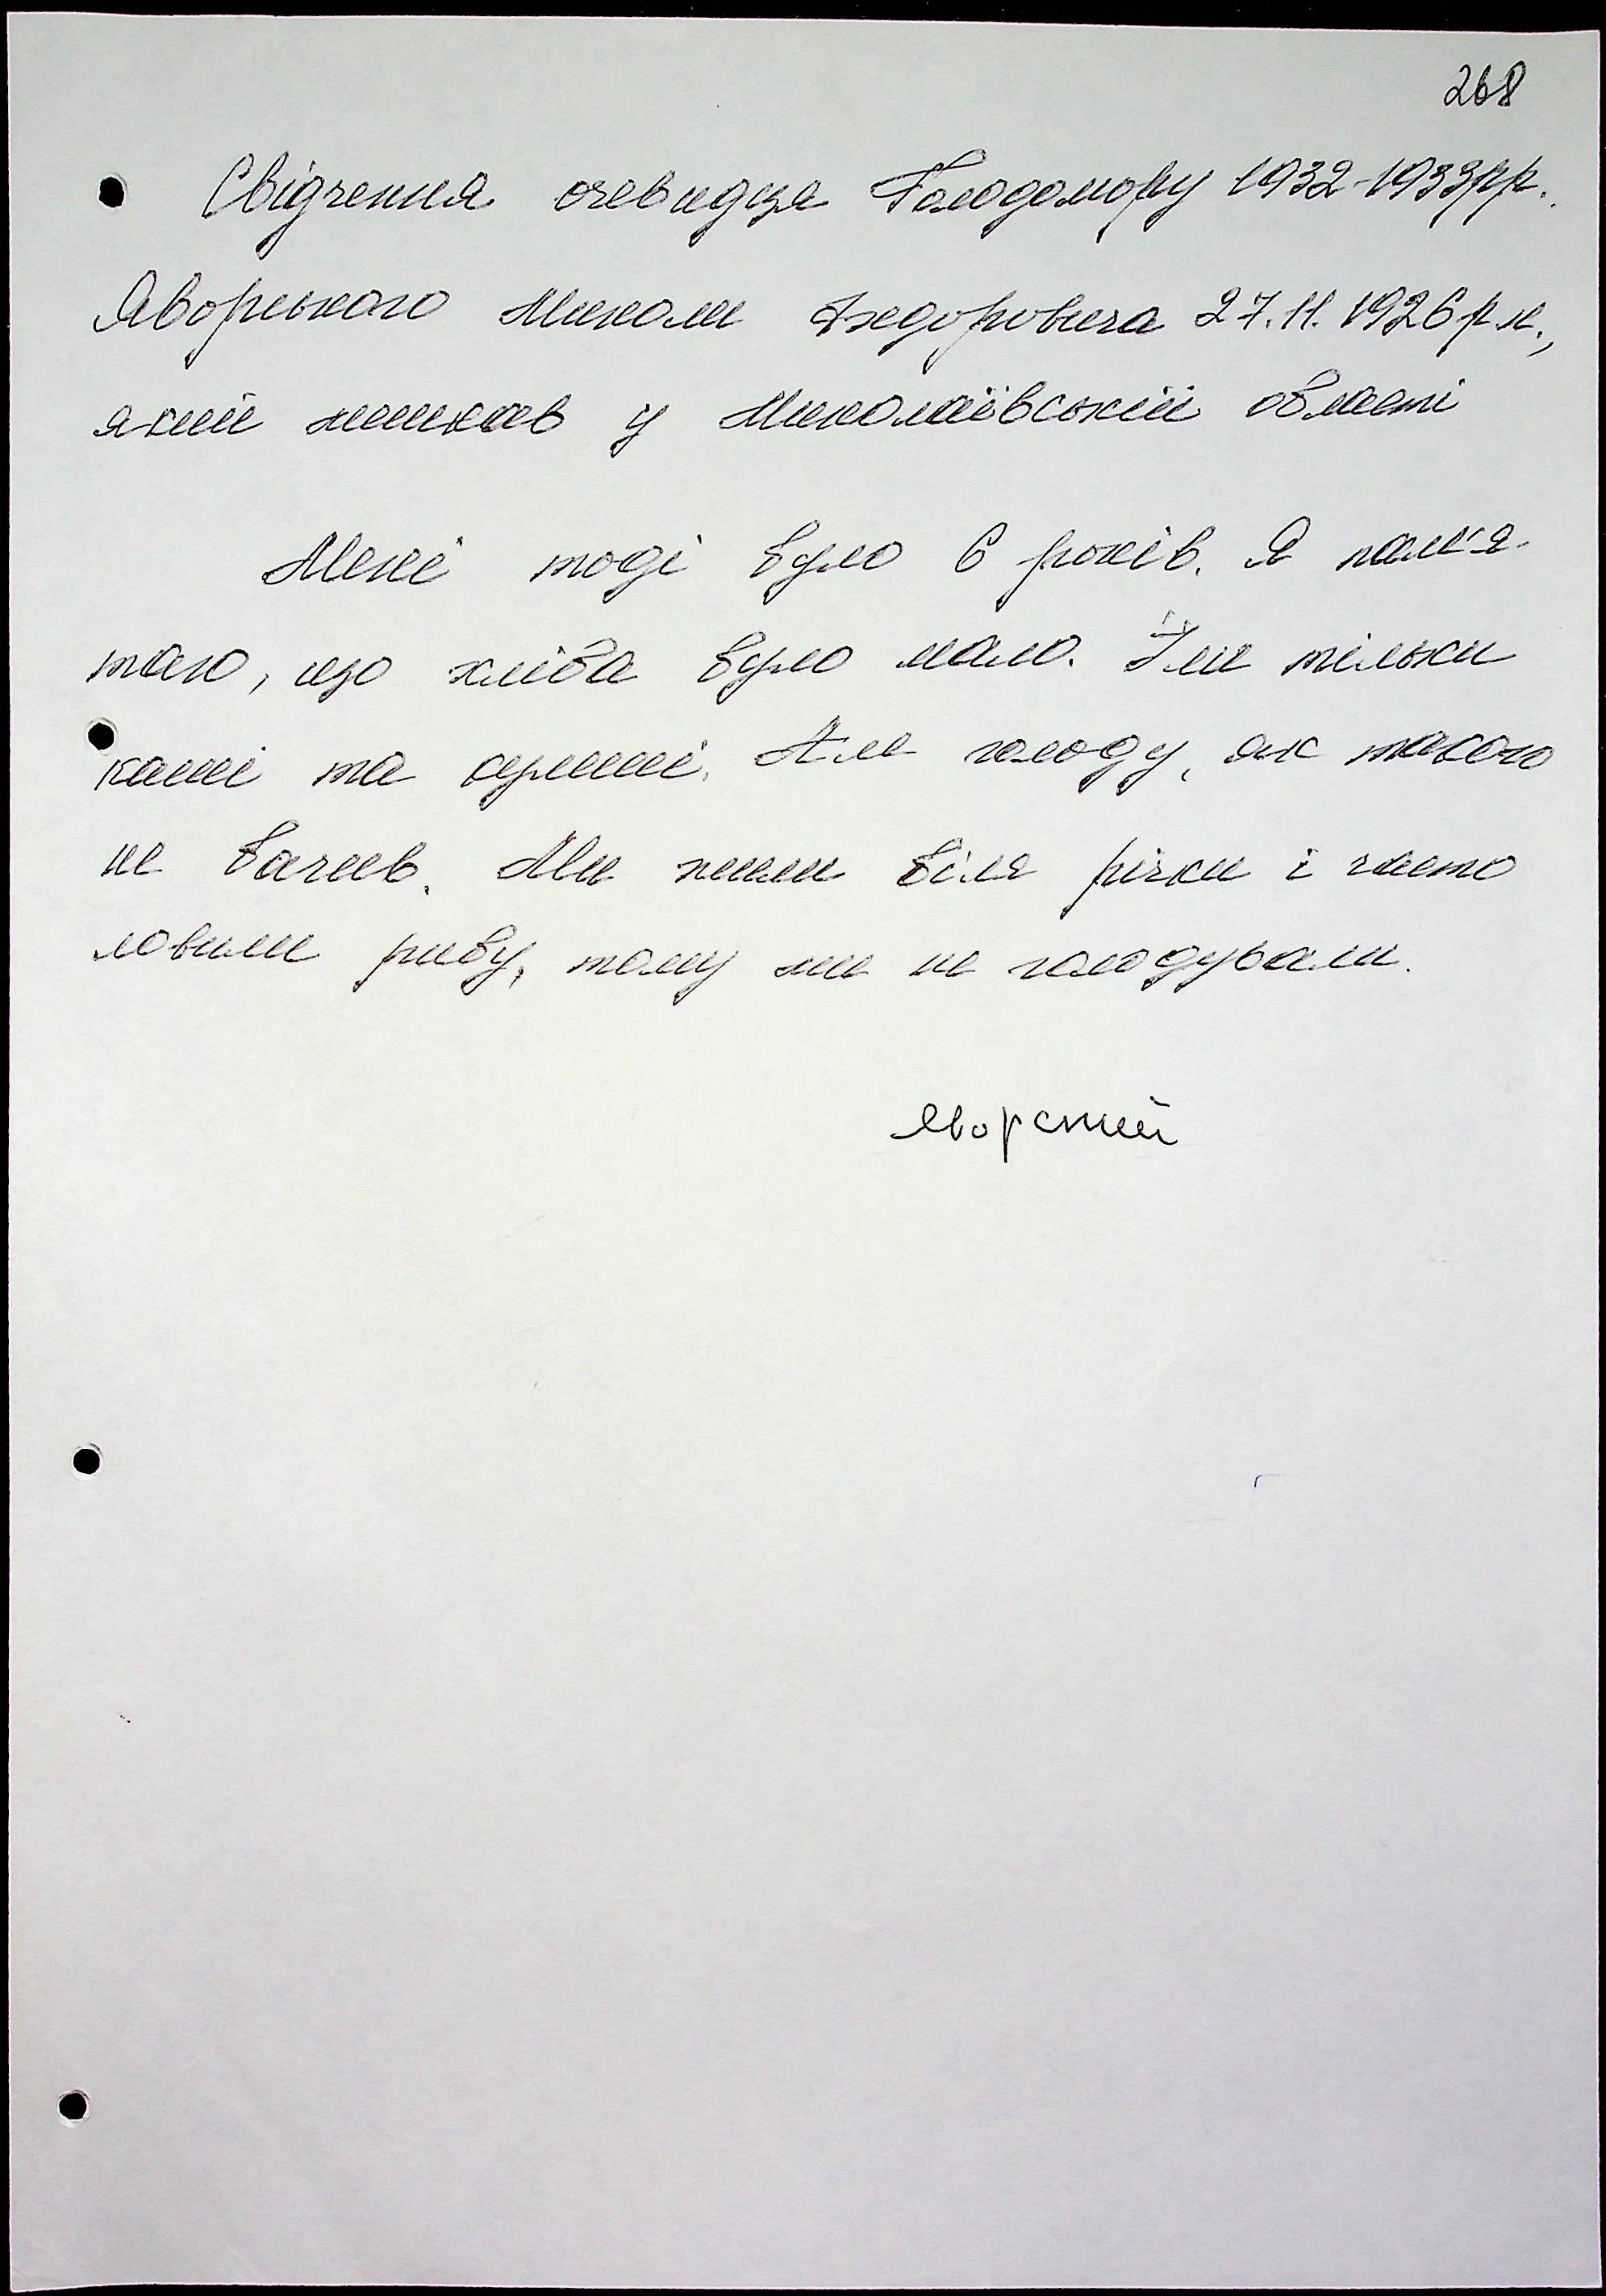 268
Свідчення очевидця Голодомору 1932-1933рр.
Яворського Миколи Федоровича 27.11.1926 р.н.,
який мешкав у Миколаївській області
Мені тоді було 6 років. Я пам'я-
таю, що хліба було мало. Їли тільки
каші та супи. Але голоду, як такого
не бачив. Ми жили біля річки і часто
ловили рибу, тому ми не голодували.
Яворский